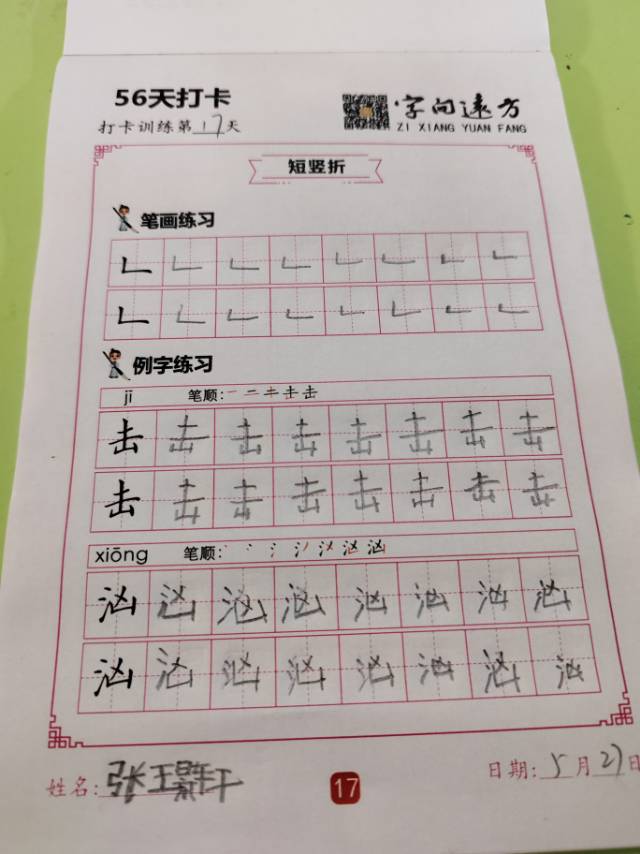 56天打卡
打卡训练第17天
字问遠方
ZI XIANG YUAN FANG
短竖折
笔画练习
例字练习
jī 笔顺:
击 击 击 击 击 击 击 击
击 击 击 击 击 击 击 击
xiōng 笔顺:
汹 汹 汹 汹 汹 汹 汹 汹
汹 汹 汹 汹 汹 汹 汹 汹
姓名:张
17
日期:5月27日